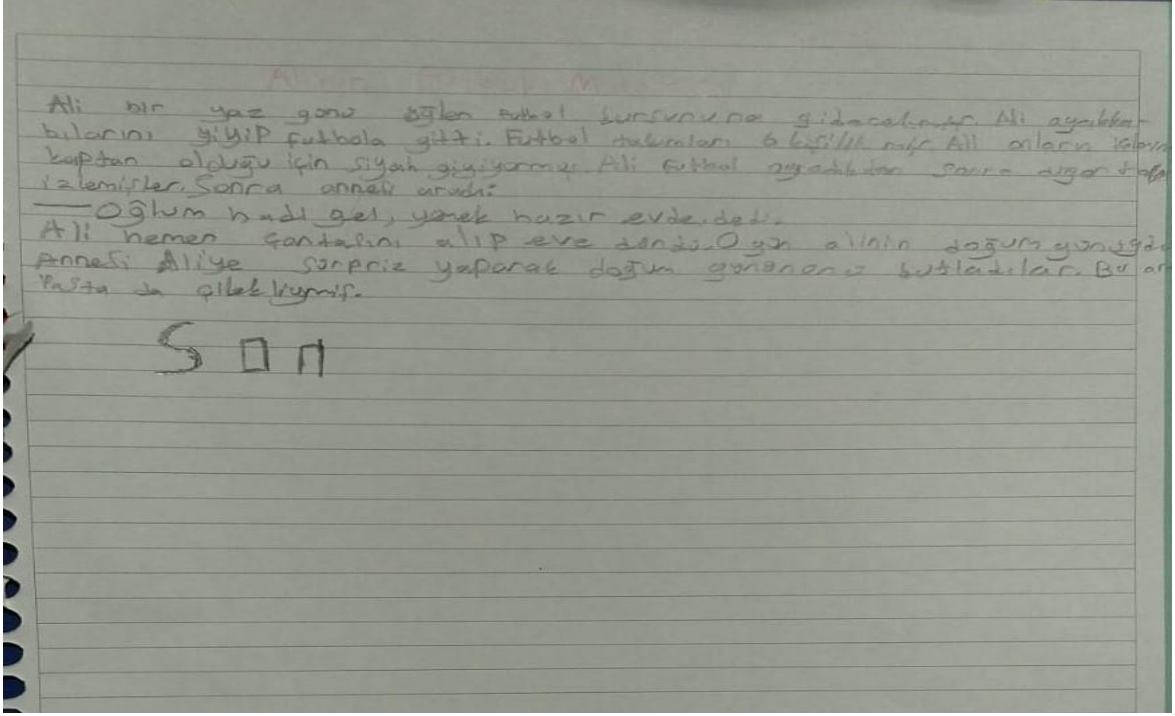 Ali bir yaz günü öğlen futbol kursununa gidecekmiş. Ali ayakka
bılarını giyip futbola gitti. Futbol takımları 6 kişilik miş Ali onların
kaptan olduğu için siyah giyiyormuş. Ali futbol oynadıktan sonra diğer
izlemişler. Sonra annesi aradı:
— Oğlum hadi gel, yemek hazır evde, dedi.
Ali hemen çantasını alıp eve döndü. O gün alinin doğum günüydü
Annesi Aliye sürpriz yaparak doğum gününü kutladılar. Bu
Pasta da çilekliymiş.
Son